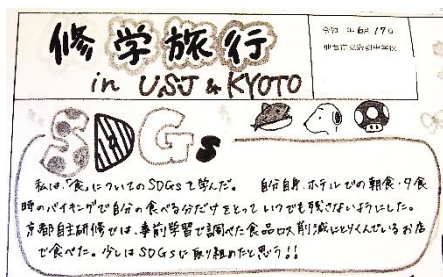 修学旅行
in USJ & KYOTO
令和 年6月17日
SDGs
私は、「食」についてのSDGsで学んだ。 自分自身、ホテルでの朝食・夕食
時のバイキングで自分の食べる分だけをとっていつでも残さないようにした。
京都自主研修では、事前学習で調べた食品ロス削減にとりくんでいるお店
で食べた。少しはSDGsに取り組めたと思う!!